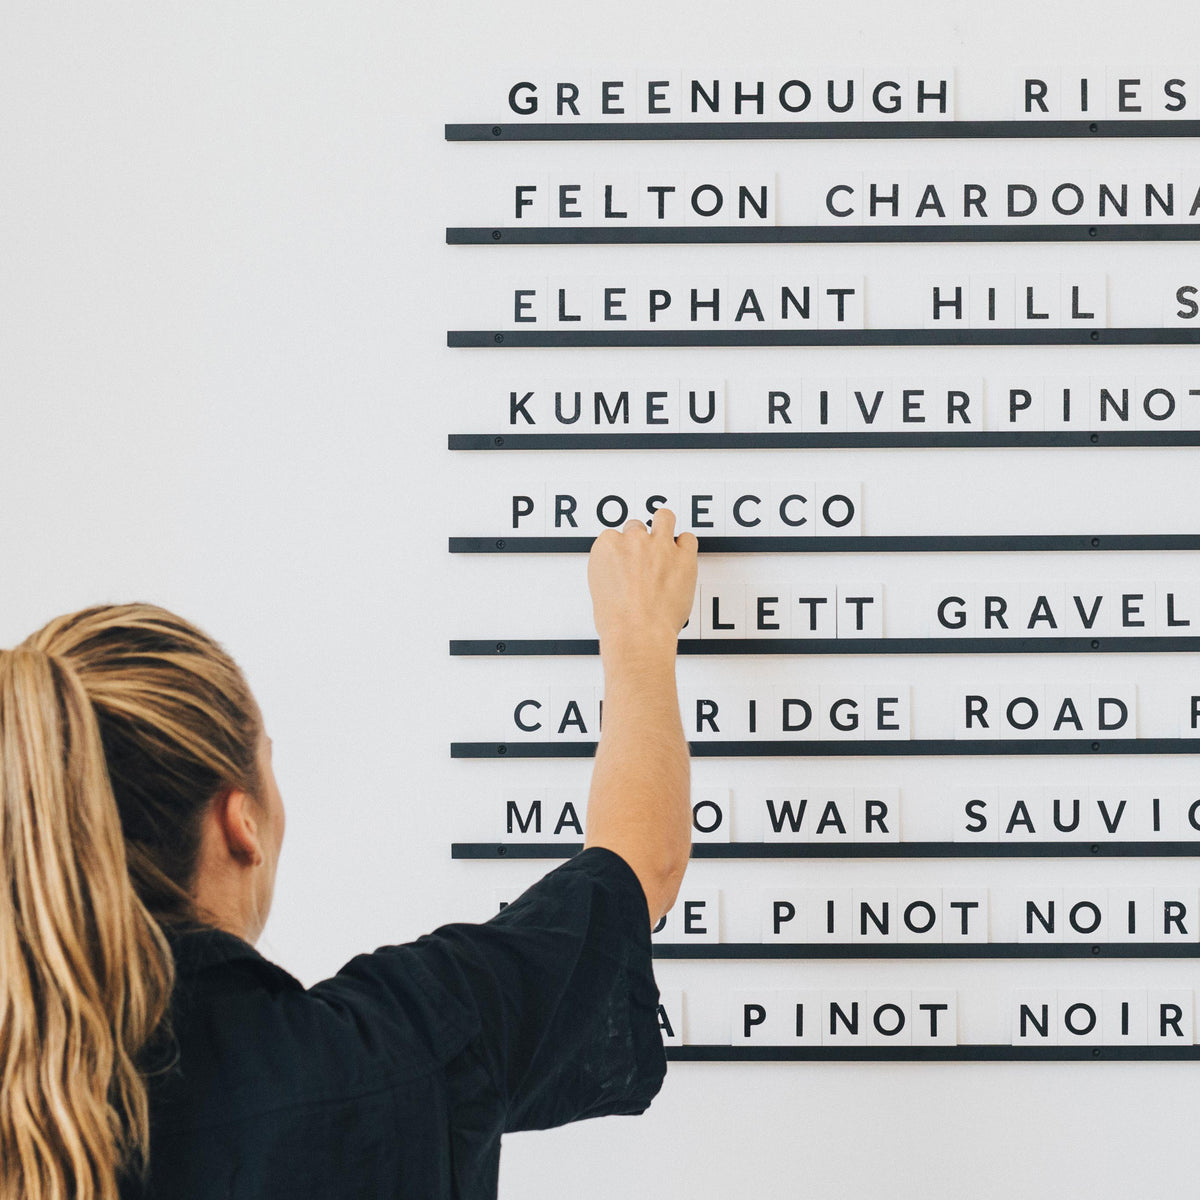 GREENHOUGH RIES
FELTON CHARDONNA
ELEPHANT HILL S
KUMEU RIVER PINOT
PROSECCO
GRAVEL
ROAD
WAR SAUVIG
PINOT NOIR
PINOT NOIR